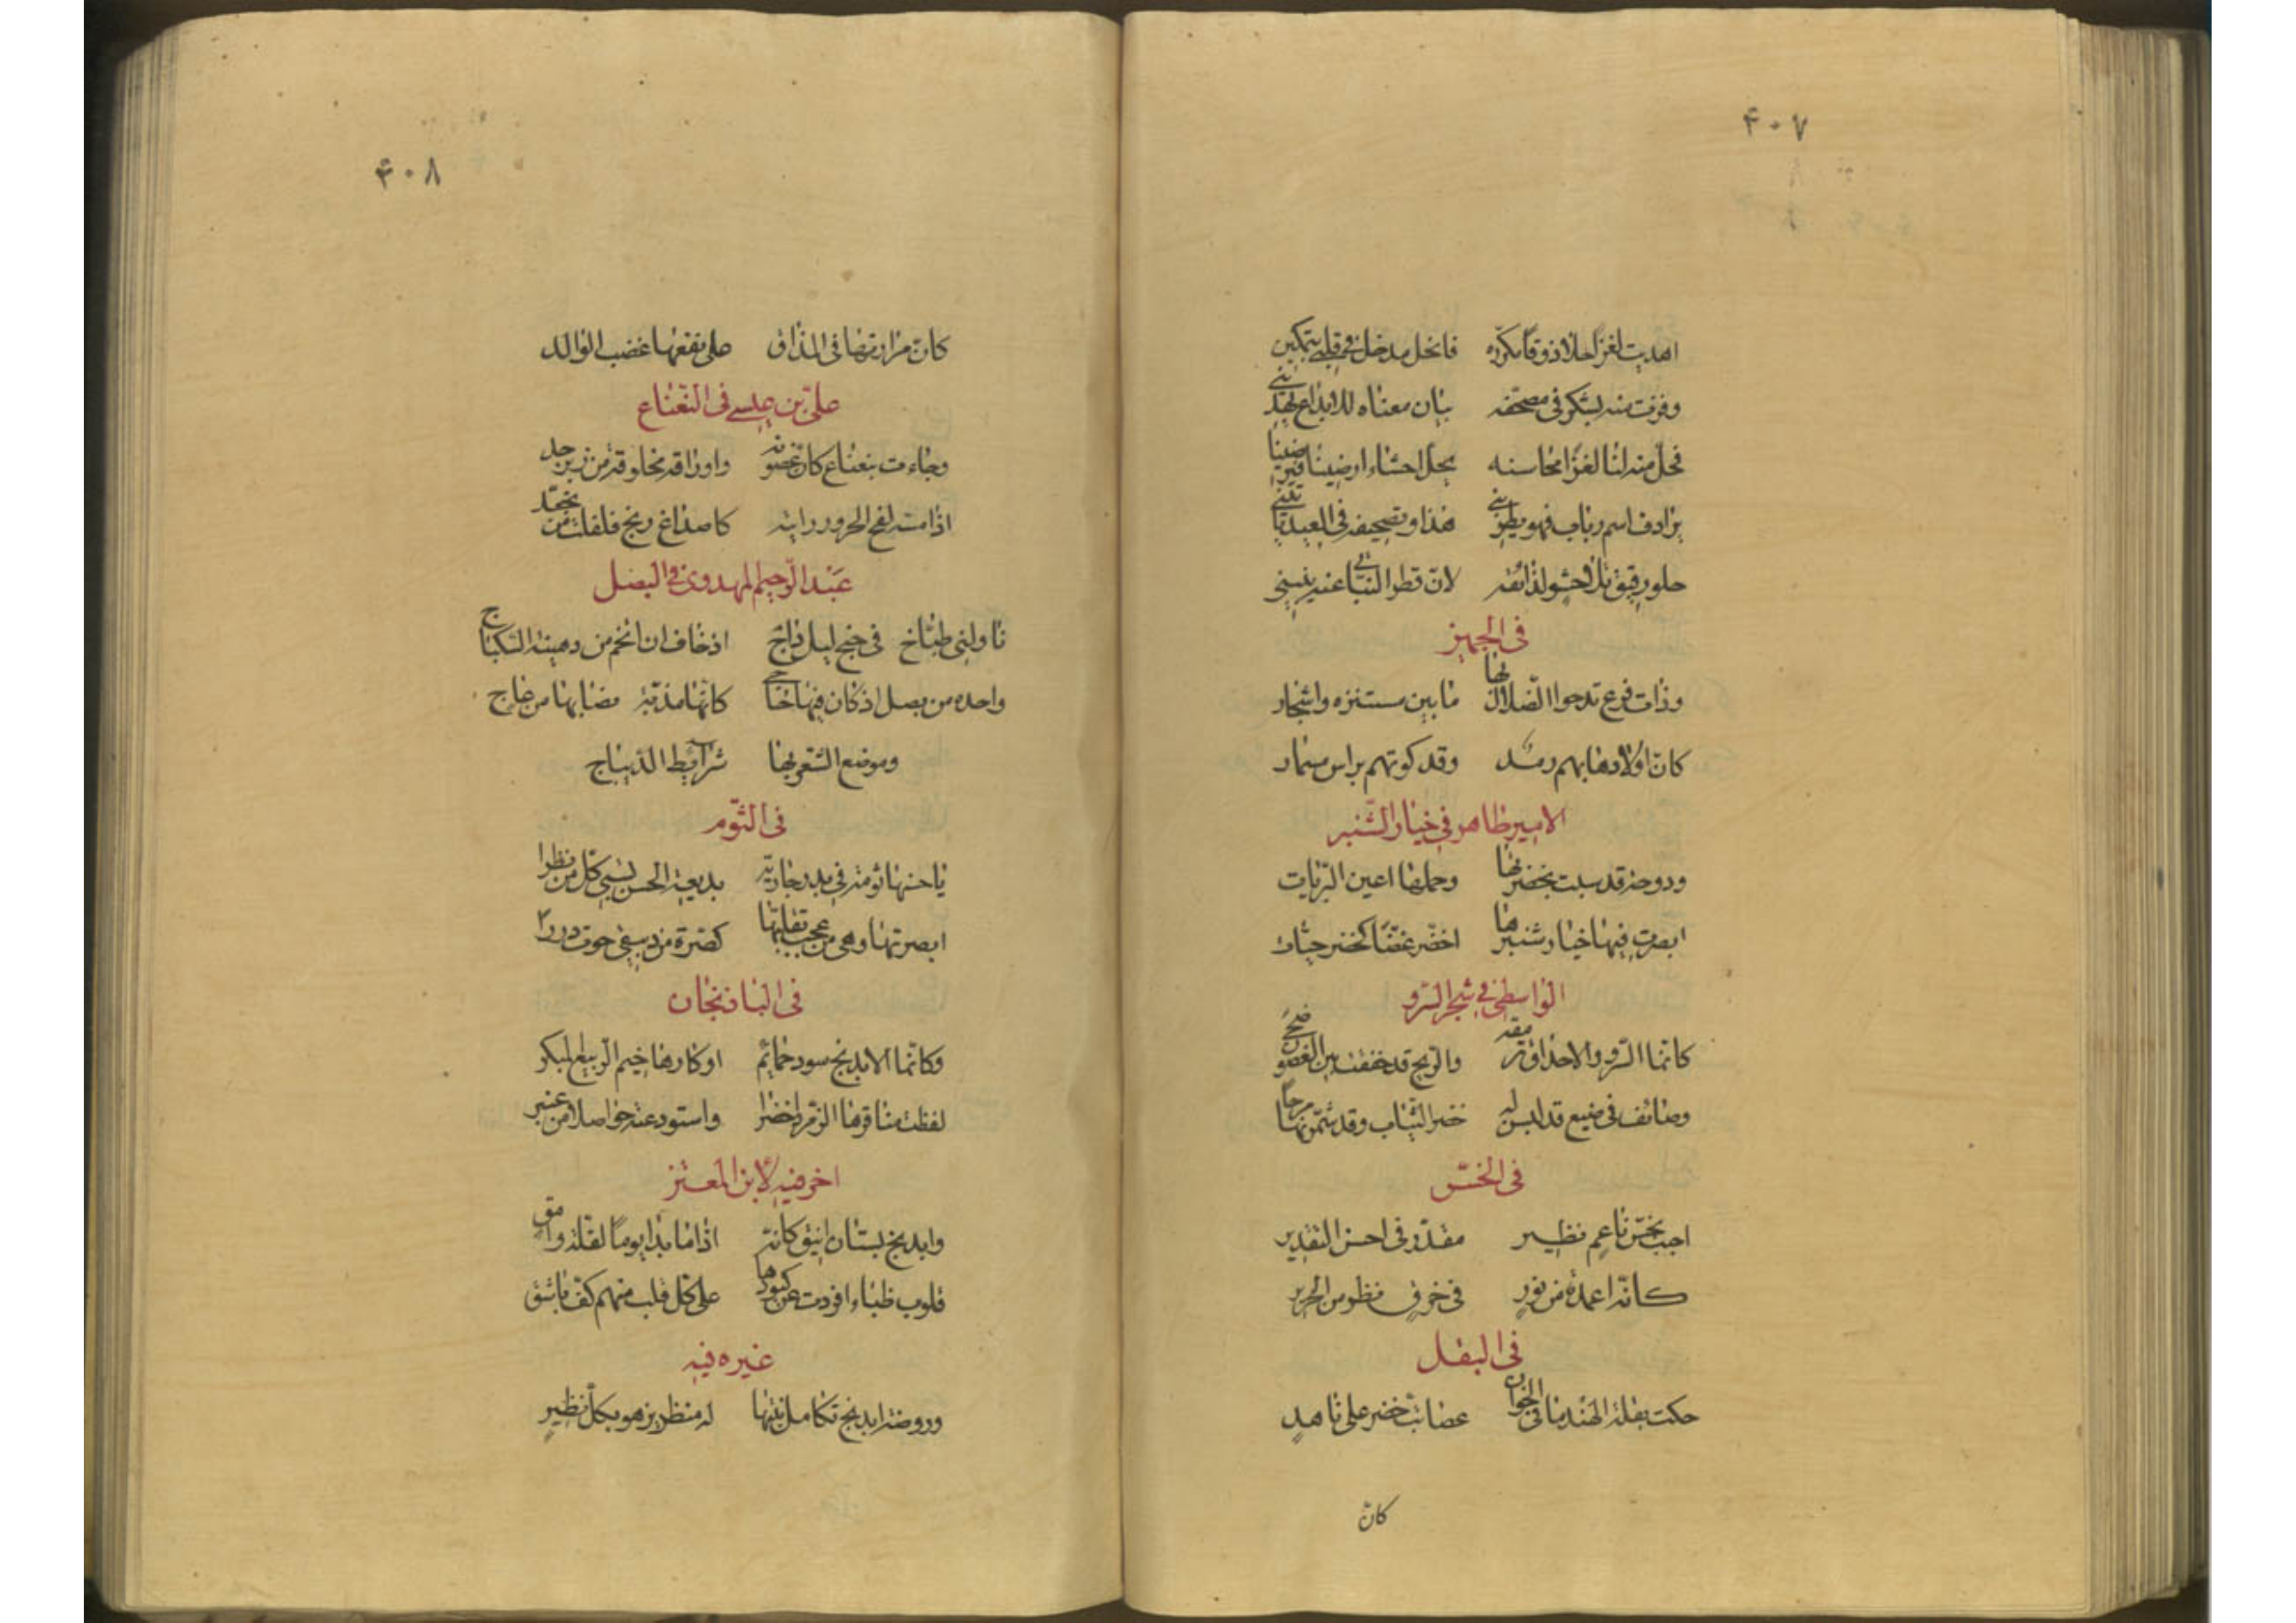 ۴۰۷
اهديت لغزا حلا ذوقا مكرره فانحل مدخل في قلبي بتمكين
وفزت منه بشكر في مصحفه بيان معناه للابداع يهديني
فحل منه لنا لغزا محاسنه بحل احشاء ارضينا
يرادف اسم رباب فهو يطربني هذا وتصحيفه في العيد ياتيني
حلو رقيق حشو لذائقه لان قطر النباتي عنه ينبيني
في الجميز
وذات فرع تدحوا الضلال لها ما بين مستنزه واشجار
كان اولادها بهم رمد وقد كوتهم براس مسمار
الامير طاهر في خيار الشنبر
ودوحة قد سبت بخضرتها وحملها اعين البريات
ابصرت فيها خيار شنبرها اخضر غضا كخضر حيات
الواسطي في شجر السرو
كانما السرو والاحداق ترمقه والريح قد خفقت بين الغصون
وصائف في ضيع قد لبسن له خضر الثياب وقد شمرنها مرحا
في الخس
اجب بخس ناعم نظير مقدر في احسن التقدير
كانه اعمدة من نور في خرق منظومن الحرير
في البقل
حكت بقلة الهندبا في الخوان عصائب خضر على ناهد
كان
۴۰۸
كان مرارتها في المذاق على نفعها غضب الوالد
علي بن عيسى في النعناع
وجاءت بنعناع كان غصونه واوراقه مخلوقة من زبرجد
اذا مسه لفح الحرور رايته كاصداغ زنج فلفلت من تجعد
عبد الرحيم المهدوي في البصل
ناولني طباخ في جنح ليل داج اذ خاف ان اتخم من دهينة السكباج
واحده من بصل اذ كان فيها حاجي كانها مذبة مضابها من عاج
وموضع الشعر بها شرائط الديباج
في الثوم
يا حسنها ثومة في يد جارية بديعة الحسن تسبي كل من نظرا
ابصرتها وهي من عجب تقلبها كصرة من دبيقي حوت دررا
في الباذنجان
وكانما الابدنج سود حمائم اوكارها خيم الربيع المبكر
لفظت مناقرها الزمرد اخضرا واستودعته حواصلا من عنبر
اخر فيه لابن المعتز
وابدنج بستان انيق كانه اذا ما بدا يوما لقلة وامق
قلوب ظباء افردت عن كبودها على كل قلب منهم كف باشق
غيره فيه
وروضة ابدنج تكامل نبتها له منظر يزهو بكل نظير